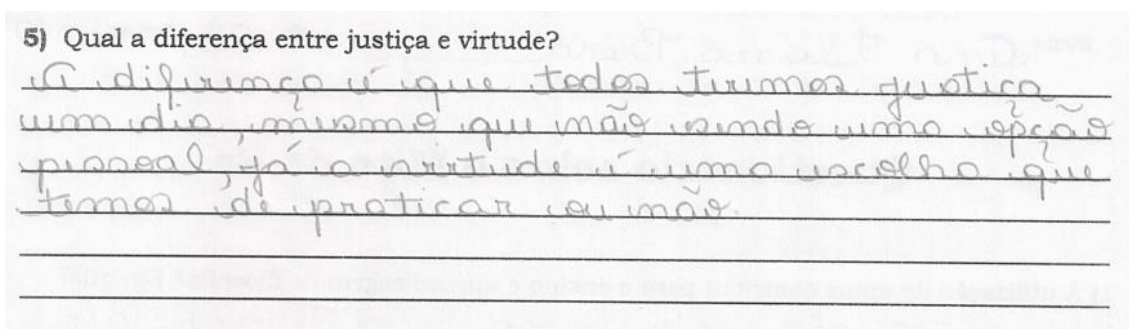 5) Qual a diferença entre justiça e virtude?
A diferença é que todos tiremos justiça
um dia, mesmo que não sendo uma opção
pessoal, já a virtude é uma escolha que
temos de praticar ou não.